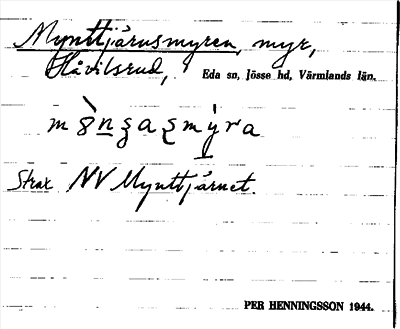 Mynttjärnsmyren, myr,
Håvilsrud, Eda sn, Jösse hd, Värmlands län.
Strax NV Mynttjärnet.
PER HENNINGSSON 1944.